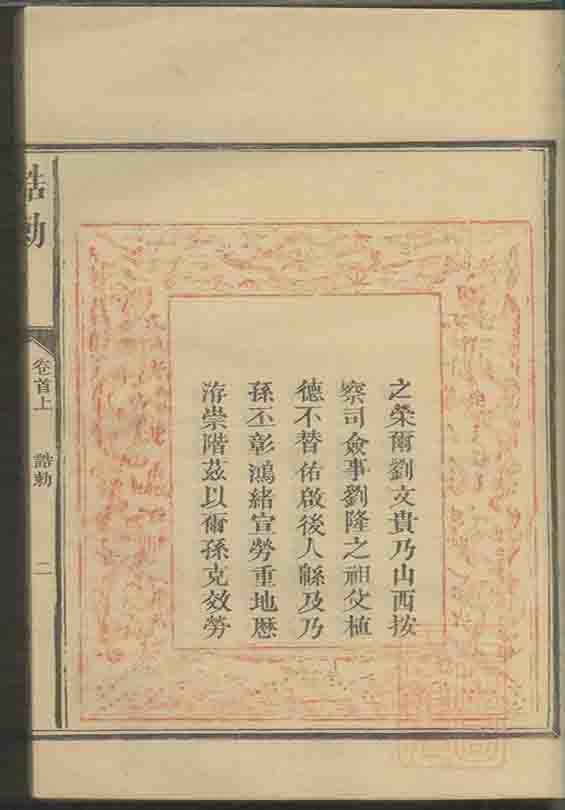 之榮爾劉文貴乃山西按
察司僉事劉隆之祖父植
德不替佑啟後人緜及乃
孫丕彰鴻緒宣勞重地歷
洊崇階茲以爾孫克效勞
誥勅
卷首上
誥勅
二